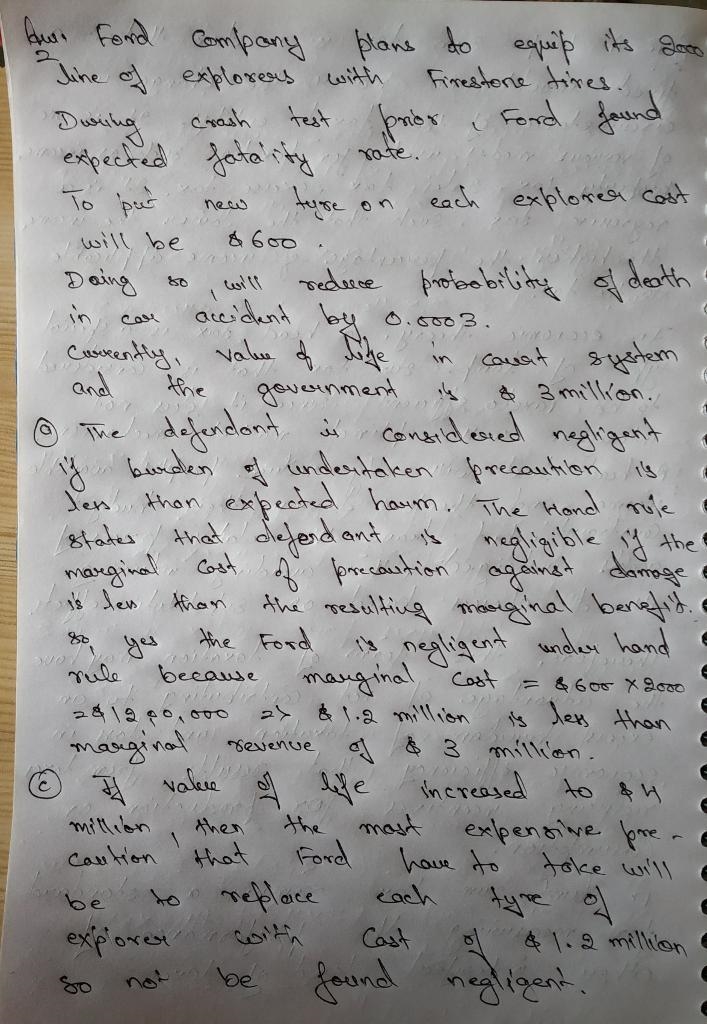 Ans. Ford Company plans to equip its 2000
2
line of explorers with Firestone tires.
During crash test prior, Ford found
expected fatality rate.
To put new tyre on each explorer cost
will be $600.
Doing so, will reduce probability of death
in car accident by 0.0003.
Currently, value of life in court system
and the government is $ 3 million.
(a) The defendant is considered negligent
if burden of undertaken precaution is
less than expected harm. The Hand rule
states that defendant is negligible if the
marginal cost of precaution against damage
is less than the resulting marginal benefit.
so, yes the Ford is negligent under hand
rule because marginal cost = $600 x 2000
= $1200,000 => $1.2 million is less than
marginal revenue of $ 3 million.
(c) If value of life increased to $4
million, then the most expensive pre-
caution that Ford have to take will
be to replace each tyre of
explorer with cost of $1.2 million
so not be found negligent.